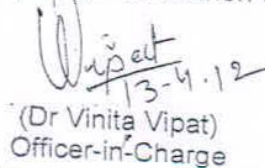 Vipat
13-4.12
(Dr Vinita Vipat)
Officer-in-Charge